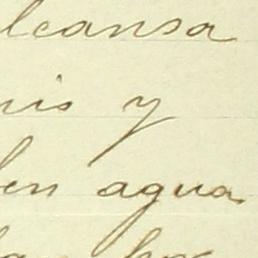 lcansa
nis y
en agua